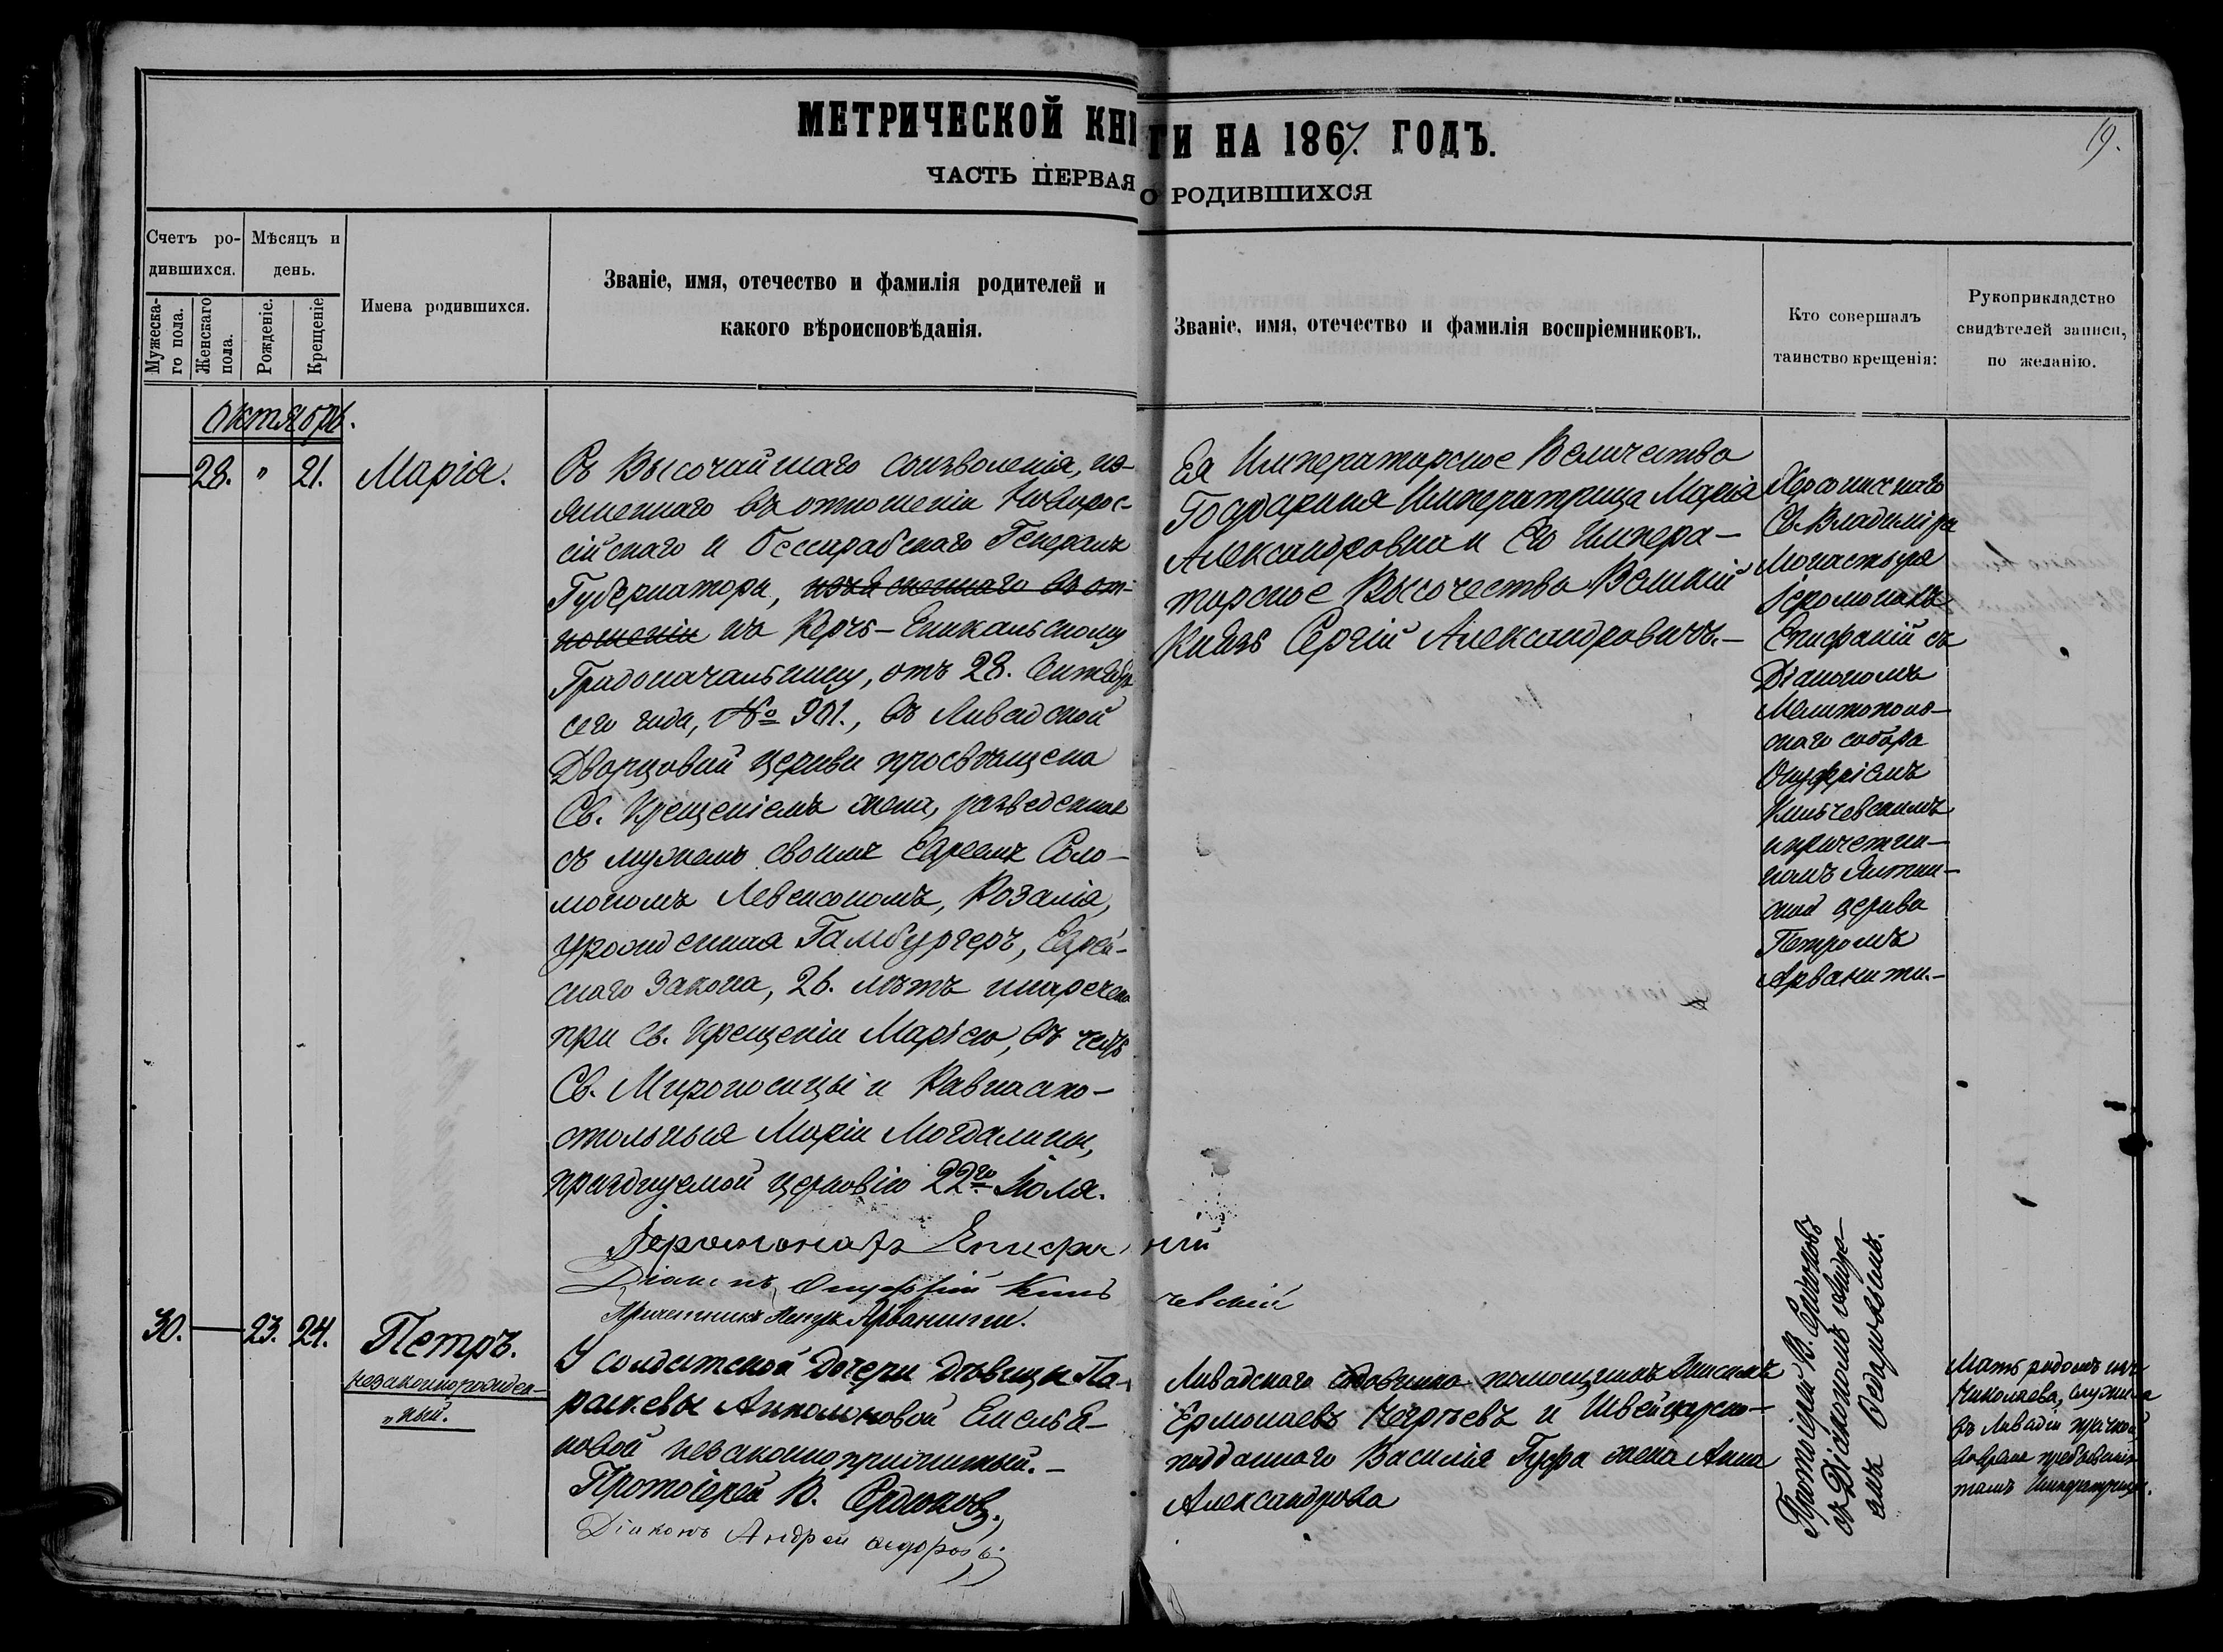 МЕТРИЧЕСКОЙ КНИГИ НА 1867. ГОДЪ.
19.
ЧАСТЬ ПЕРВАЯ О РОДИВШИХСЯ
Счетъ ро-
дившихся.
Мужеска-
го пола.
Женскаго
пола.
Мѣсяцъ и
день.
Рожденіе.
Крещеніе
Имена родившихся.
Званіе, имя, отечество и фамилія родителей и
какого вѣроисповѣданія.
Званіе, имя, отечество и фамилія воспріемниковъ.
Кто совершалъ
таинство крещенія:
Рукоприкладство
свидѣтелей записи,
по желанію.
Октябрь.
28. " 21. Марія.
Съ Высочайшаго соизволенія, изъ-
ясненнаго въ отношеніи Новорос-
сійскаго и Бессарабскаго Генералъ
Губернатора, изъясненнаго въ от-
ношеніи къ Керчь-Еникальскому
Градоначальнику, отъ 28. Сентября
сего года, № 901., въ Ливадской
Дворцовой церкви просвѣщена
Св. Крещеніемъ жена, разведенная
съ мужемъ своимъ Евреемъ Соло-
мономъ Левенсономъ, Розалія,
урожденная Гамбургеръ, Еврей-
скаго Закона, 26. лѣтъ и наречена
при Св. Крещеніи Маріею, въ честь
Св. Мироносицы и Равноапо-
стольныя Маріи Магдалины,
празднуемой церковію 22го Іюля.
Іеромонахъ Епифаній
Діаконъ Онуфрій Кильчевскій
Причетникъ Петръ Арванити.
Ея Императорское Величество
Государыня Императрица Марія
Александровна и Его Импера-
торское Высочество Великій
Князь Сергій Александровичъ.-
Херсонискаго
Св. Владиміра
Монастыря
Іеромонахъ
Епифаній съ
Діакономъ
Мелитополь-
скаго собора
Онуфріемъ
Кильчевскимъ
и причетни-
комъ Ялтин-
ской церкви
Петромъ
Арванити.-
30. 23. 24. Петръ.
незаконнорожден-
"ный.
У солдатской дочери дѣвицы Па-
раскевы Анполоновой Емелья-
новой незаконноприжитый.-
Протоіерей В. Сердюковъ.
Діаконъ Андрей
Ливадскаго садовника помощникъ Анисимъ
Ермолаевъ и Швейцарско-
подданнаго Василія Гуфа жена Анна
Александрова
Протоіерей В. Сердюковъ
съ Діакономъ Андре-
емъ
Мать родомъ изъ
Николаева, служила
въ Ливадіи прачкой,
во время пребыванія
тамъ Императрицы.